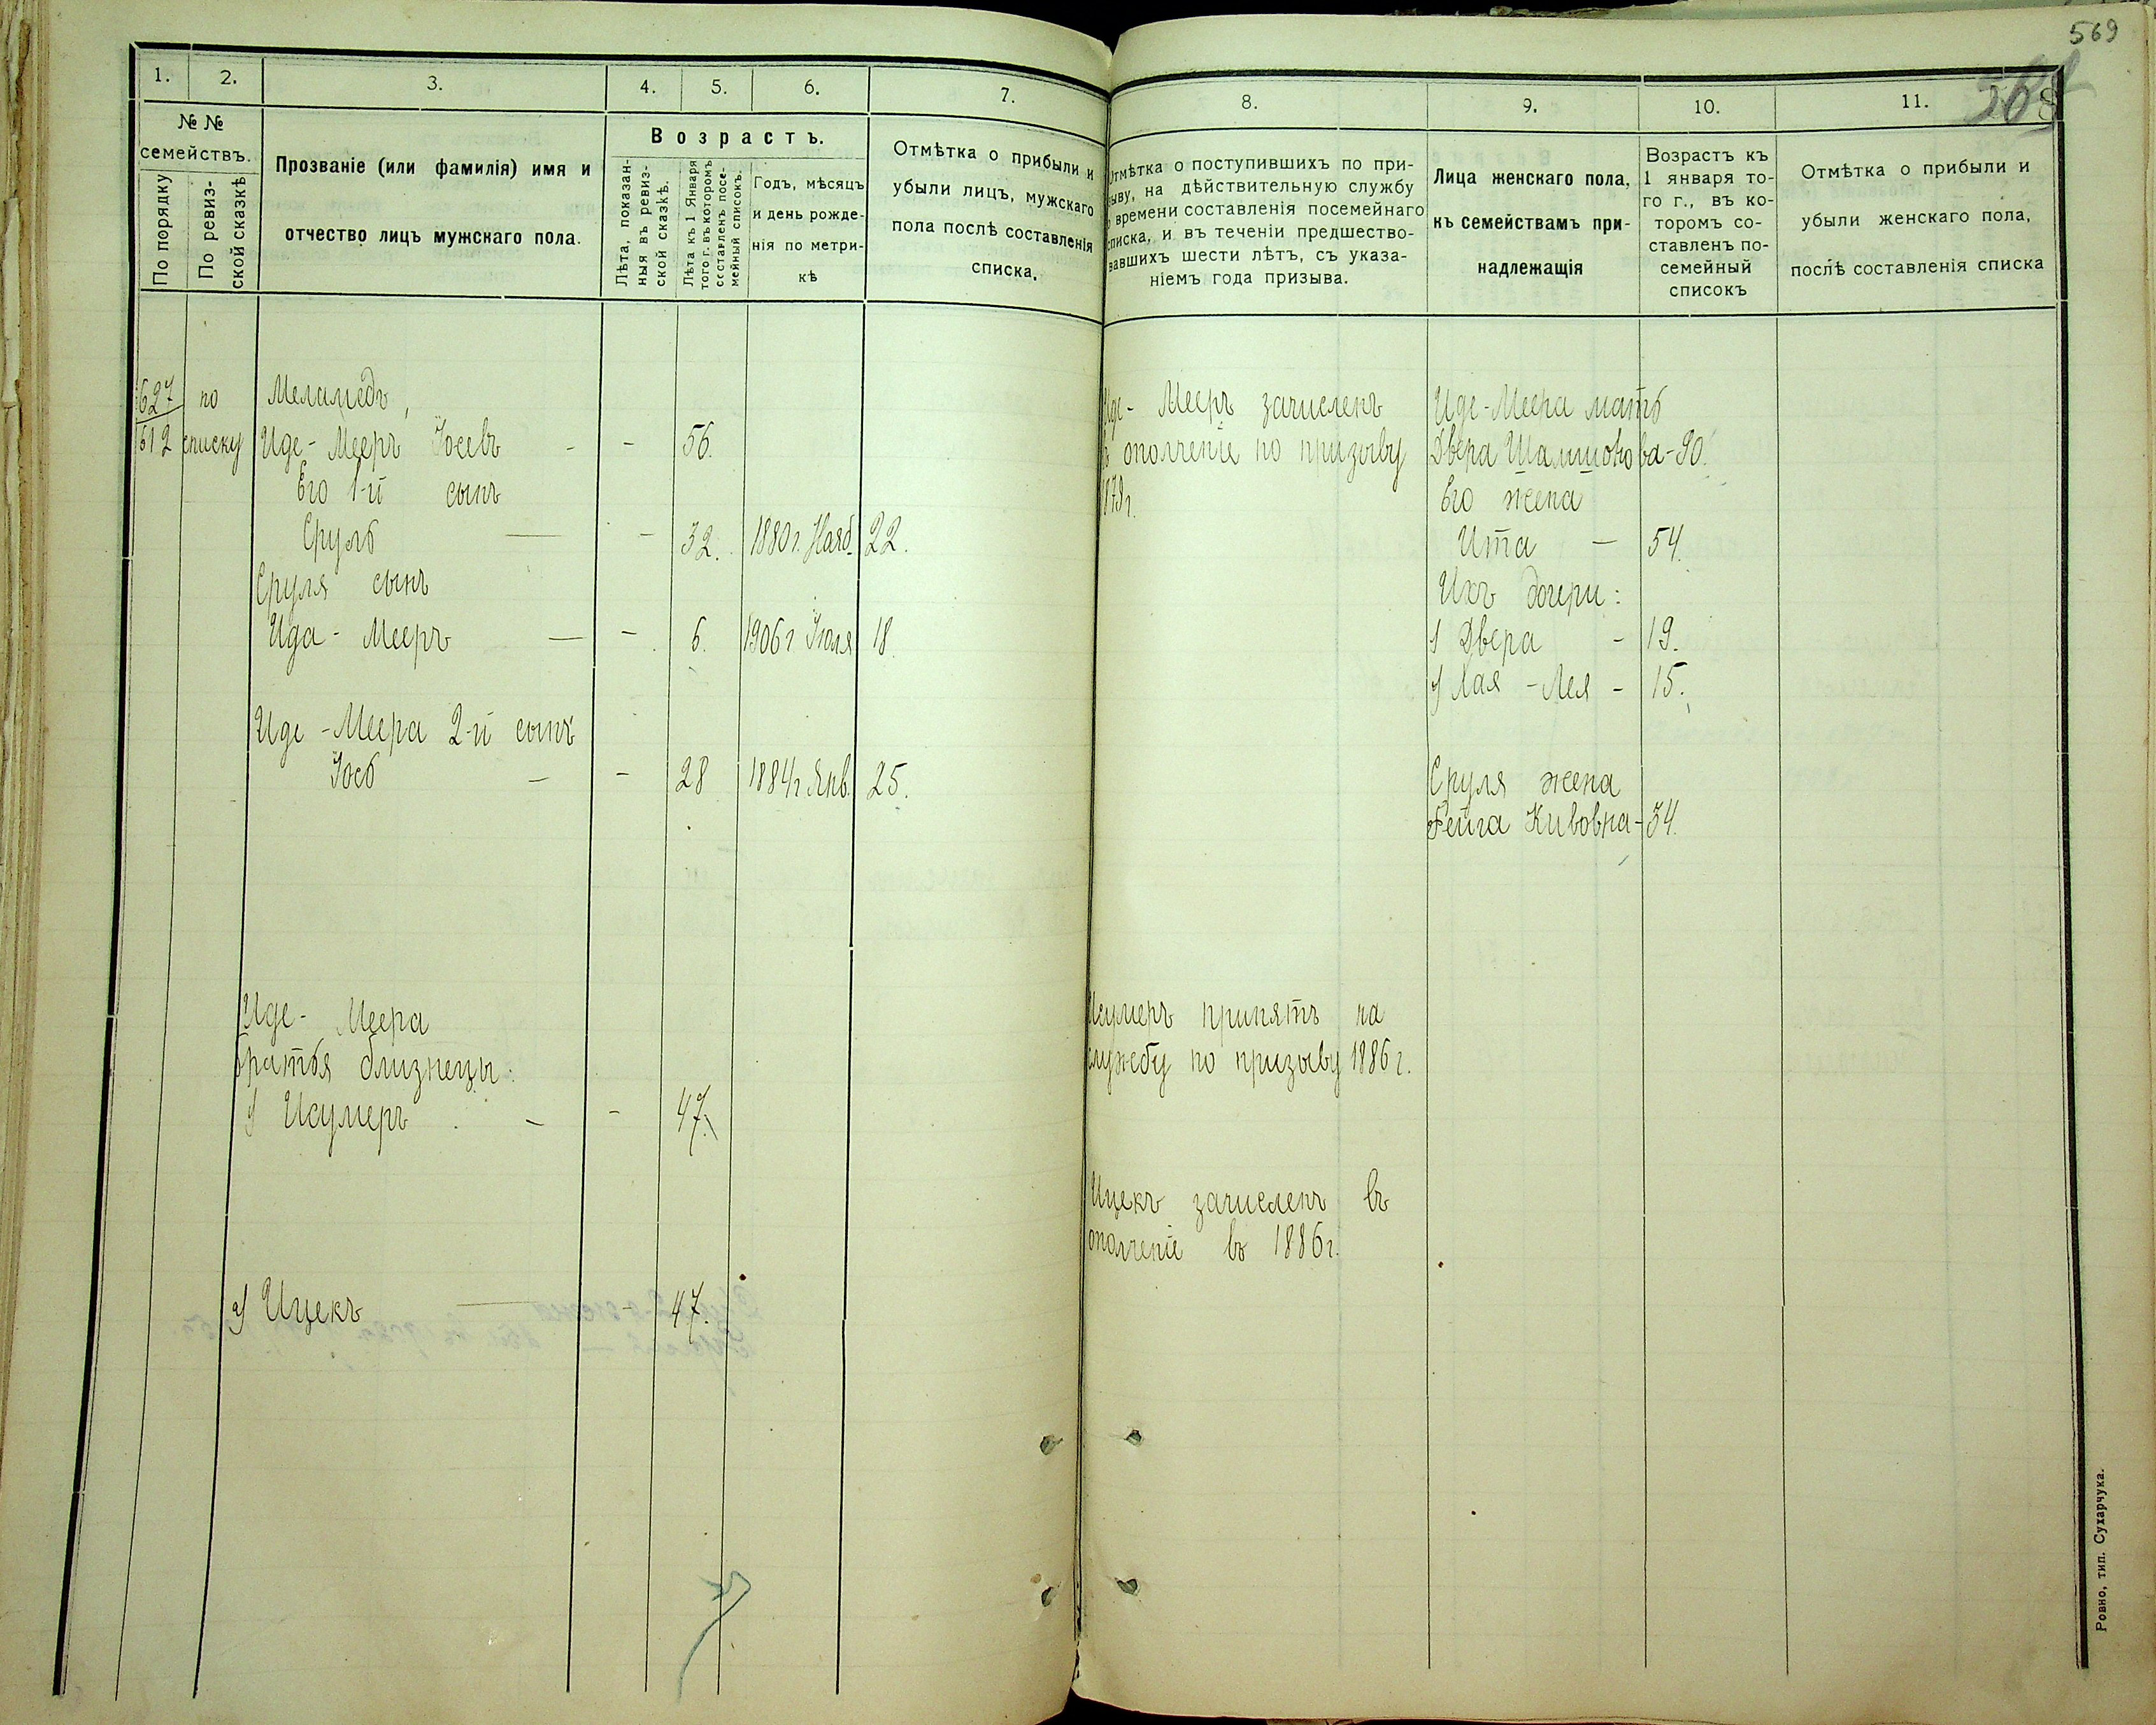 569
1.
2.
3.
4.
5.
6.
7.
№ №
семействъ.
По порядку
По ревиз-
ской сказкѣ
Прозваніе (или фамилія) имя и
отчество лицъ мужскаго пола.
Возрастъ.
Лѣта, показан-
ныя въ ревиз-
ской сказкѣ.
Лѣта къ 1 Января
того г. въ которомъ
составленъ посе-
мейный списокъ.
Годъ, мѣсяцъ
и день рожде-
нія по метри-
кѣ
Отмѣтка о прибыли и
убыли лицъ, мужскаго
пола послѣ составленія
списка.
627 по Меламедъ,
612 списку Иде-Мееръ Іосевъ - - 56.
Его 1-й сынъ
Сруль — - 32. 1880 г. Нояб. 22.
Сруля сынъ
Ида-Мееръ — - 6. 1906 г Іюля 18
Иде-Меера 2-й сынъ
Іось - - 28 1884 г. Янв. 25.
Иде-Меера
братья близнецы:
1) Исумеръ - - 47.
2) Ицекъ — - 47.
8.
9.
10.
11.
Отмѣтка о поступившихъ по при-
зыву, на дѣйствительную службу
времени составленія посемейнаго
списка, и въ теченіи предшество-
вавшихъ шести лѣтъ, съ указа-
ніемъ года призыва.
Лица женскаго пола,
къ семействамъ при-
надлежащія
Возрастъ къ
1 января то-
го г., въ ко-
торомъ со-
ставленъ по-
семейный
списокъ
Отмѣтка о прибыли и
убыли женскаго пола,
послѣ составленія списка
Иде-Мееръ зачисленъ
в ополченіе по призыву
1879 г.
Исумеръ принятъ на
службу по призыву 1886 г.
Ицекъ зачисленъ въ
ополченіе въ 1886 г.
Иде-Меера мать
Двера Шлиомова-90.
Его жена
Ита - 54.
Ихъ дочери:
1 Двера - 19.
2) Хая-Лея - 15.
Сруля жена
Фейга Кивовна - 34.
Ровно, тип. Сухарчука.